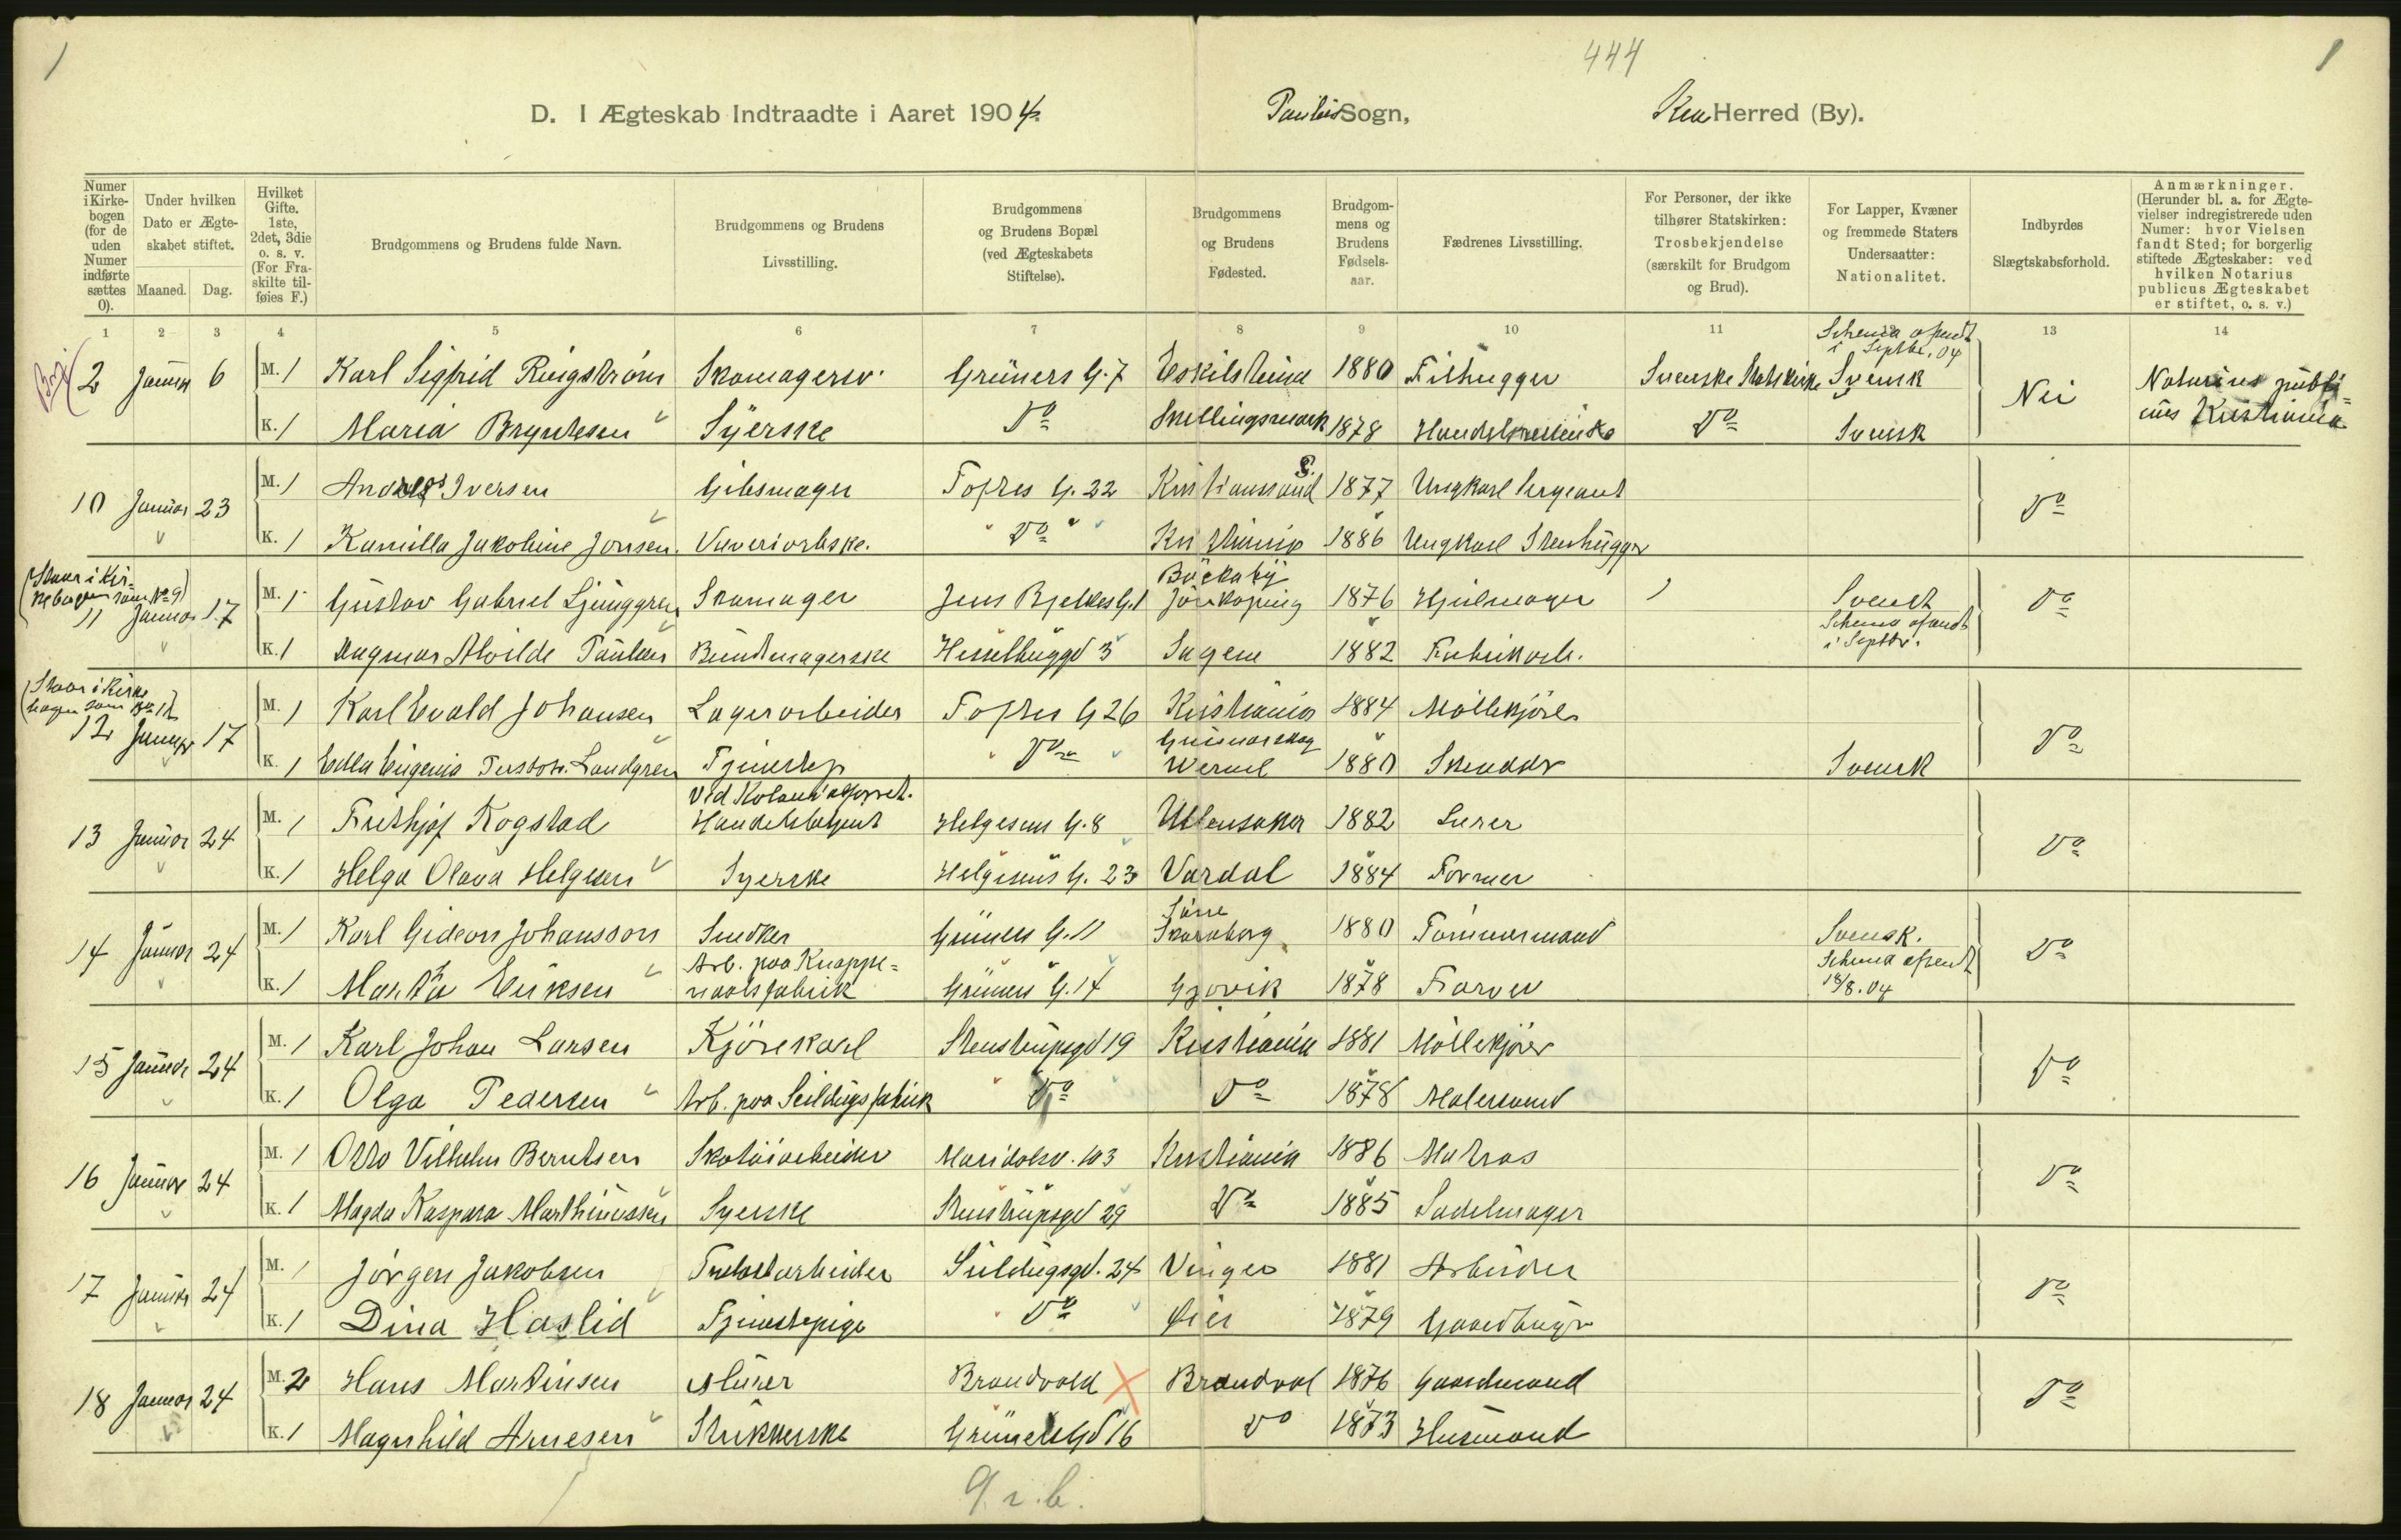 444
D. I Ægteskab Indtraadte i Aaret 1904. Paulus Sogn, Kra Herred (By).
Numer i Kirkebogen (for de uden Numer indførte sættes 0).
Under hvilken Dato er Ægteskabet stiftet.
Maaned. Dag.
Hvilket Gifte. 1ste, 2det, 3die o. s. v. (For Fraskilte tilføies F.)
Brudgommens og Brudens fulde Navn.
Brudgommens og Brudens Livsstilling.
Brudgommens og Brudens Bopæl (ved Ægteskabets Stiftelse).
Brudgommens og Brudens Fødested.
Brudgommens og Brudens Fødselsaar.
Fædrenes Livsstilling.
For Personer, der ikke tilhører Statskirken: Trosbekjendelse (særskilt for Brudgom og Brud).
For Lapper, Kvæner og fremmede Staters Undersaatter: Nationalitet.
Indbyrdes Slægtskabsforhold.
Anmærkninger. (Herunder bl. a. for Ægtevielser indregistrerede uden Numer: hvor Vielsen fandt Sted; for borgerlig stiftede Ægteskaber: ved hvilken Notarius publicus Ægteskabet er stiftet, o. s. v.)
1 2 3 4 5 6 7 8 9 10 11 12 13 14
Schema afsendt i Septbr. 04
2 Januar 6 M. 1 Karl Sigfrid Ringström Skomagersv. Grüners G. 7 Eskilstuna 1880 Filhugger Svenske Statskirke Svensk Nei Notarius publicus Kristiania
K. 1 Maria Bryntesen Syerske Do Skillingsmark 1878 Do Svensk
10 Januar 23 M. 1 Anders Iversen Gibsmager Toftes G. 22 Kristianssand S. 1877 Ungkarl Sergeant Do
K. 1 Kamilla Jakobine Jonsen Væveriarbske. Do Kristiania 1886 Ungkarl Stenhugger
(Staar i Kirkebogen som No 9)
11 Januar 17 M. 1 Gustav Gabriel Ljunggren Skomager Jens Bjelkes G. 1 Bäckaby Jönkøping 1876 Hjulmager Svensk Do
K. 1 Dagmar Alvilde Paulsen Buntmagerske Hesselbergsgd 3 Sagene 1882 Fabrikarb. Schema afsendt i Septbr.
(Staar i Kirkebogen som No 12)
12 Januar 17 M. 1 Karl Evald Johansen Lagerarbeider Toftes G 26 Kristiania 1884 Møllekjører Do
K. 1 Edla Eugenia Landgren Tjenestep Do Gunnarskog Werml 1880 Skrædder Svensk
13 Januar 24 M. 1 Frithjof Rogstad Handelsbetjent Helgesens G. 8 Ullensaker 1882 Lærer Do
K. 1 Helga Olava Helgesen Syerske Helgesens G. 23 Vardal 1884 Former
14 Januar 24 M. 1 Karl Gideon Johansson Snedker Grüners G. 11 Skaraborg 1880 Tømmermand Svensk. Do
K. 1 Martha Eriksen Arb. paa Knappenaalsfabrik Grüners G. 14 Gjøvik 1878 Farver Schema afsendt 18/8. 04
15 Januar 24 M. 1 Karl Johan Larsen Kjørekarl Stenstrupsgd 19 Kristiania 1881 Møllekjører Do
K. 1 Olga Pedersen Arb. paa Seildugsfabrik Do Do 1878 Malersvend
16 Januar 24 M. 1 Otto Vilhelm Berntsen Skotøiarbeider Maridalsv. 103 Kristiania 1886 Matros Do
K. 1 Magda Kaspara Marthinussen Syerske Stenstrupsgd 29 Do 1885 Sadelmager
17 Januar 24 M. 1 Jørgen Jakobsen Trælastarbeider Seildugsgd. 24 Vinger 1881 Arbeider Do
K. 1 Dina Haslid Tjenestepige Do Øier 1879 Gaardbruger
18 Januar 24 M. 2 Hans Martinsen Murer Brandvold Brandvol 1876 Gaardmand Do
K. 1 Magnhild Arnesen Strikkerske Grünersgd 16 Do 1873 Husmand
9. i. b.